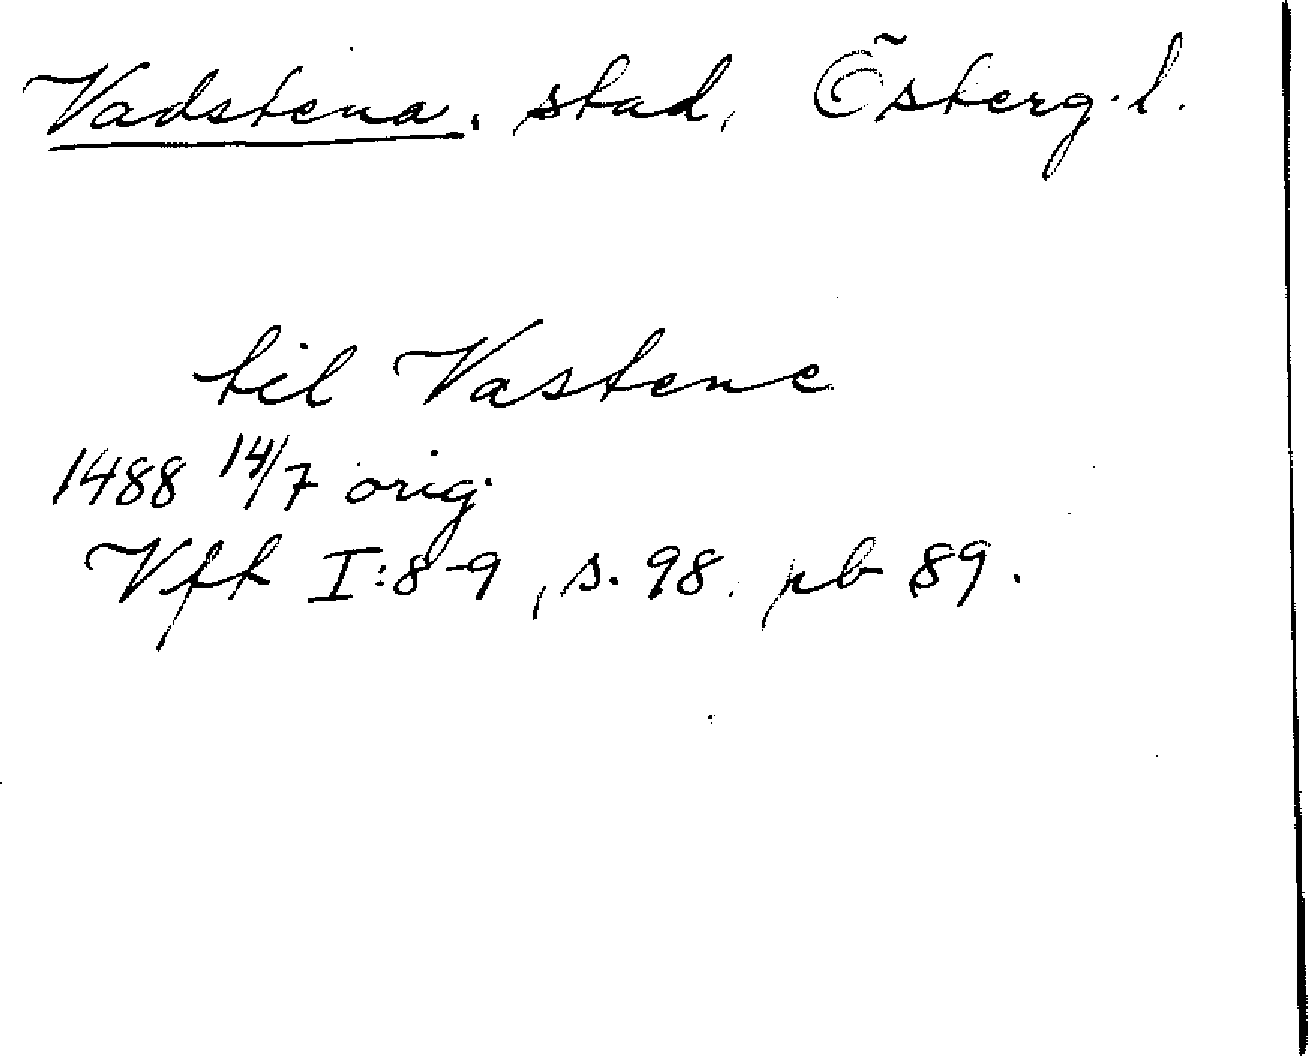 Vadstena, stad, Österg.l.
til Vastene
1488 14/7 orig.
Vft I:8-9, s. 98. pb 89.